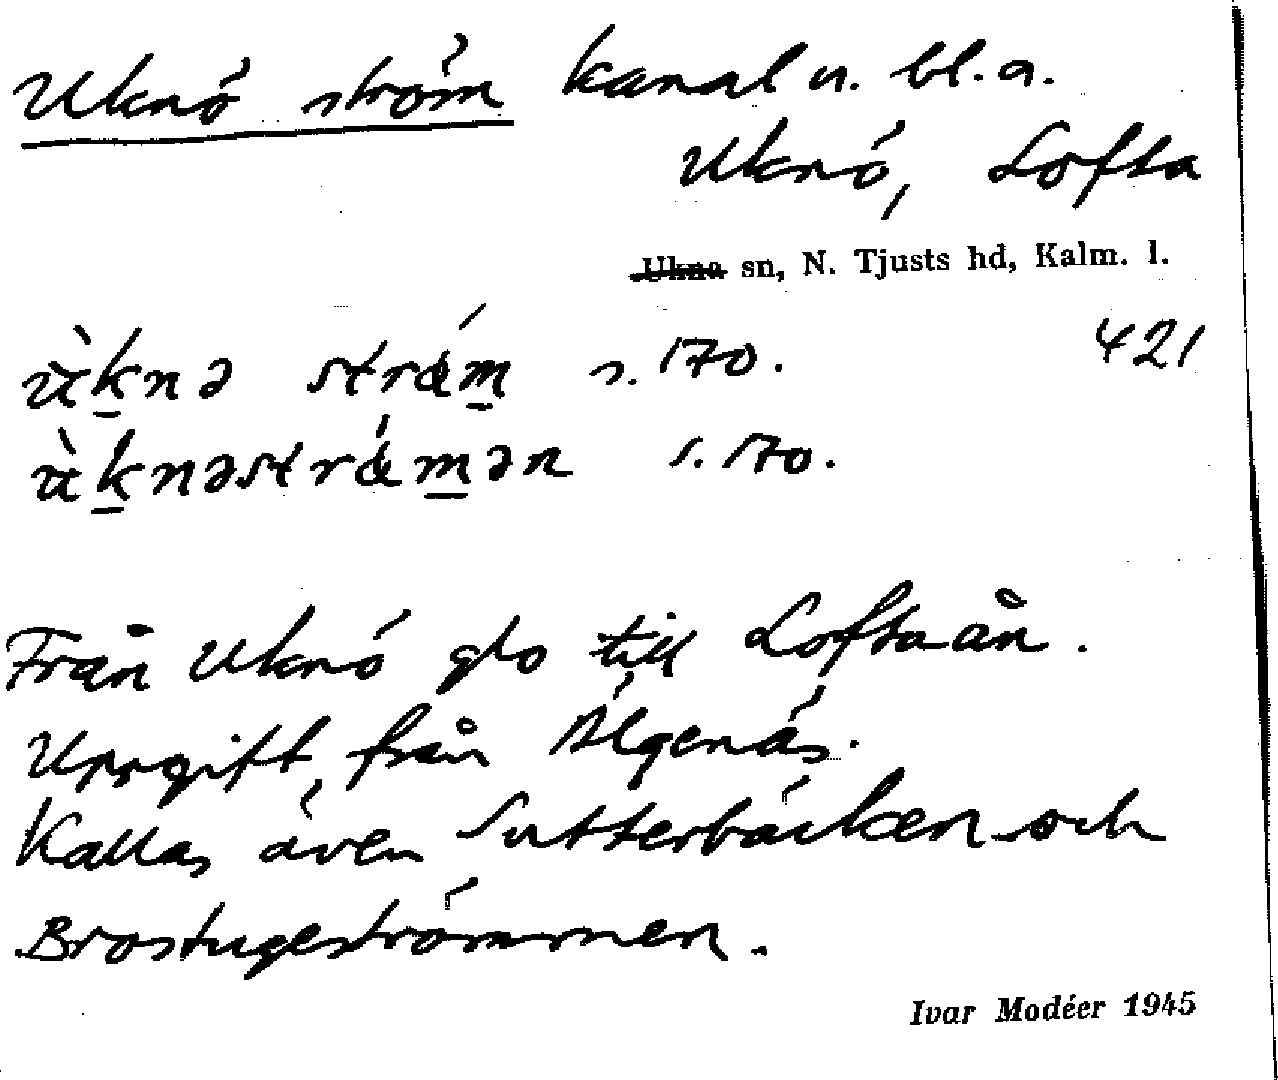 Uknö ström kanal n. bl. a.
Uknö, Lofta
Ukna sn, N. Tjusts hd, Kalm. l.
ùk̲nə strǿm̲ s. 170. 421
ùk̲nəstrǿm̲ən s. 170.
Från Uknö glo till Loftaån.
Uppgift från Älgenäs.
Kallas även Sutterbäcken och
Brostugeströmmen.
Ivar Modéer 1945